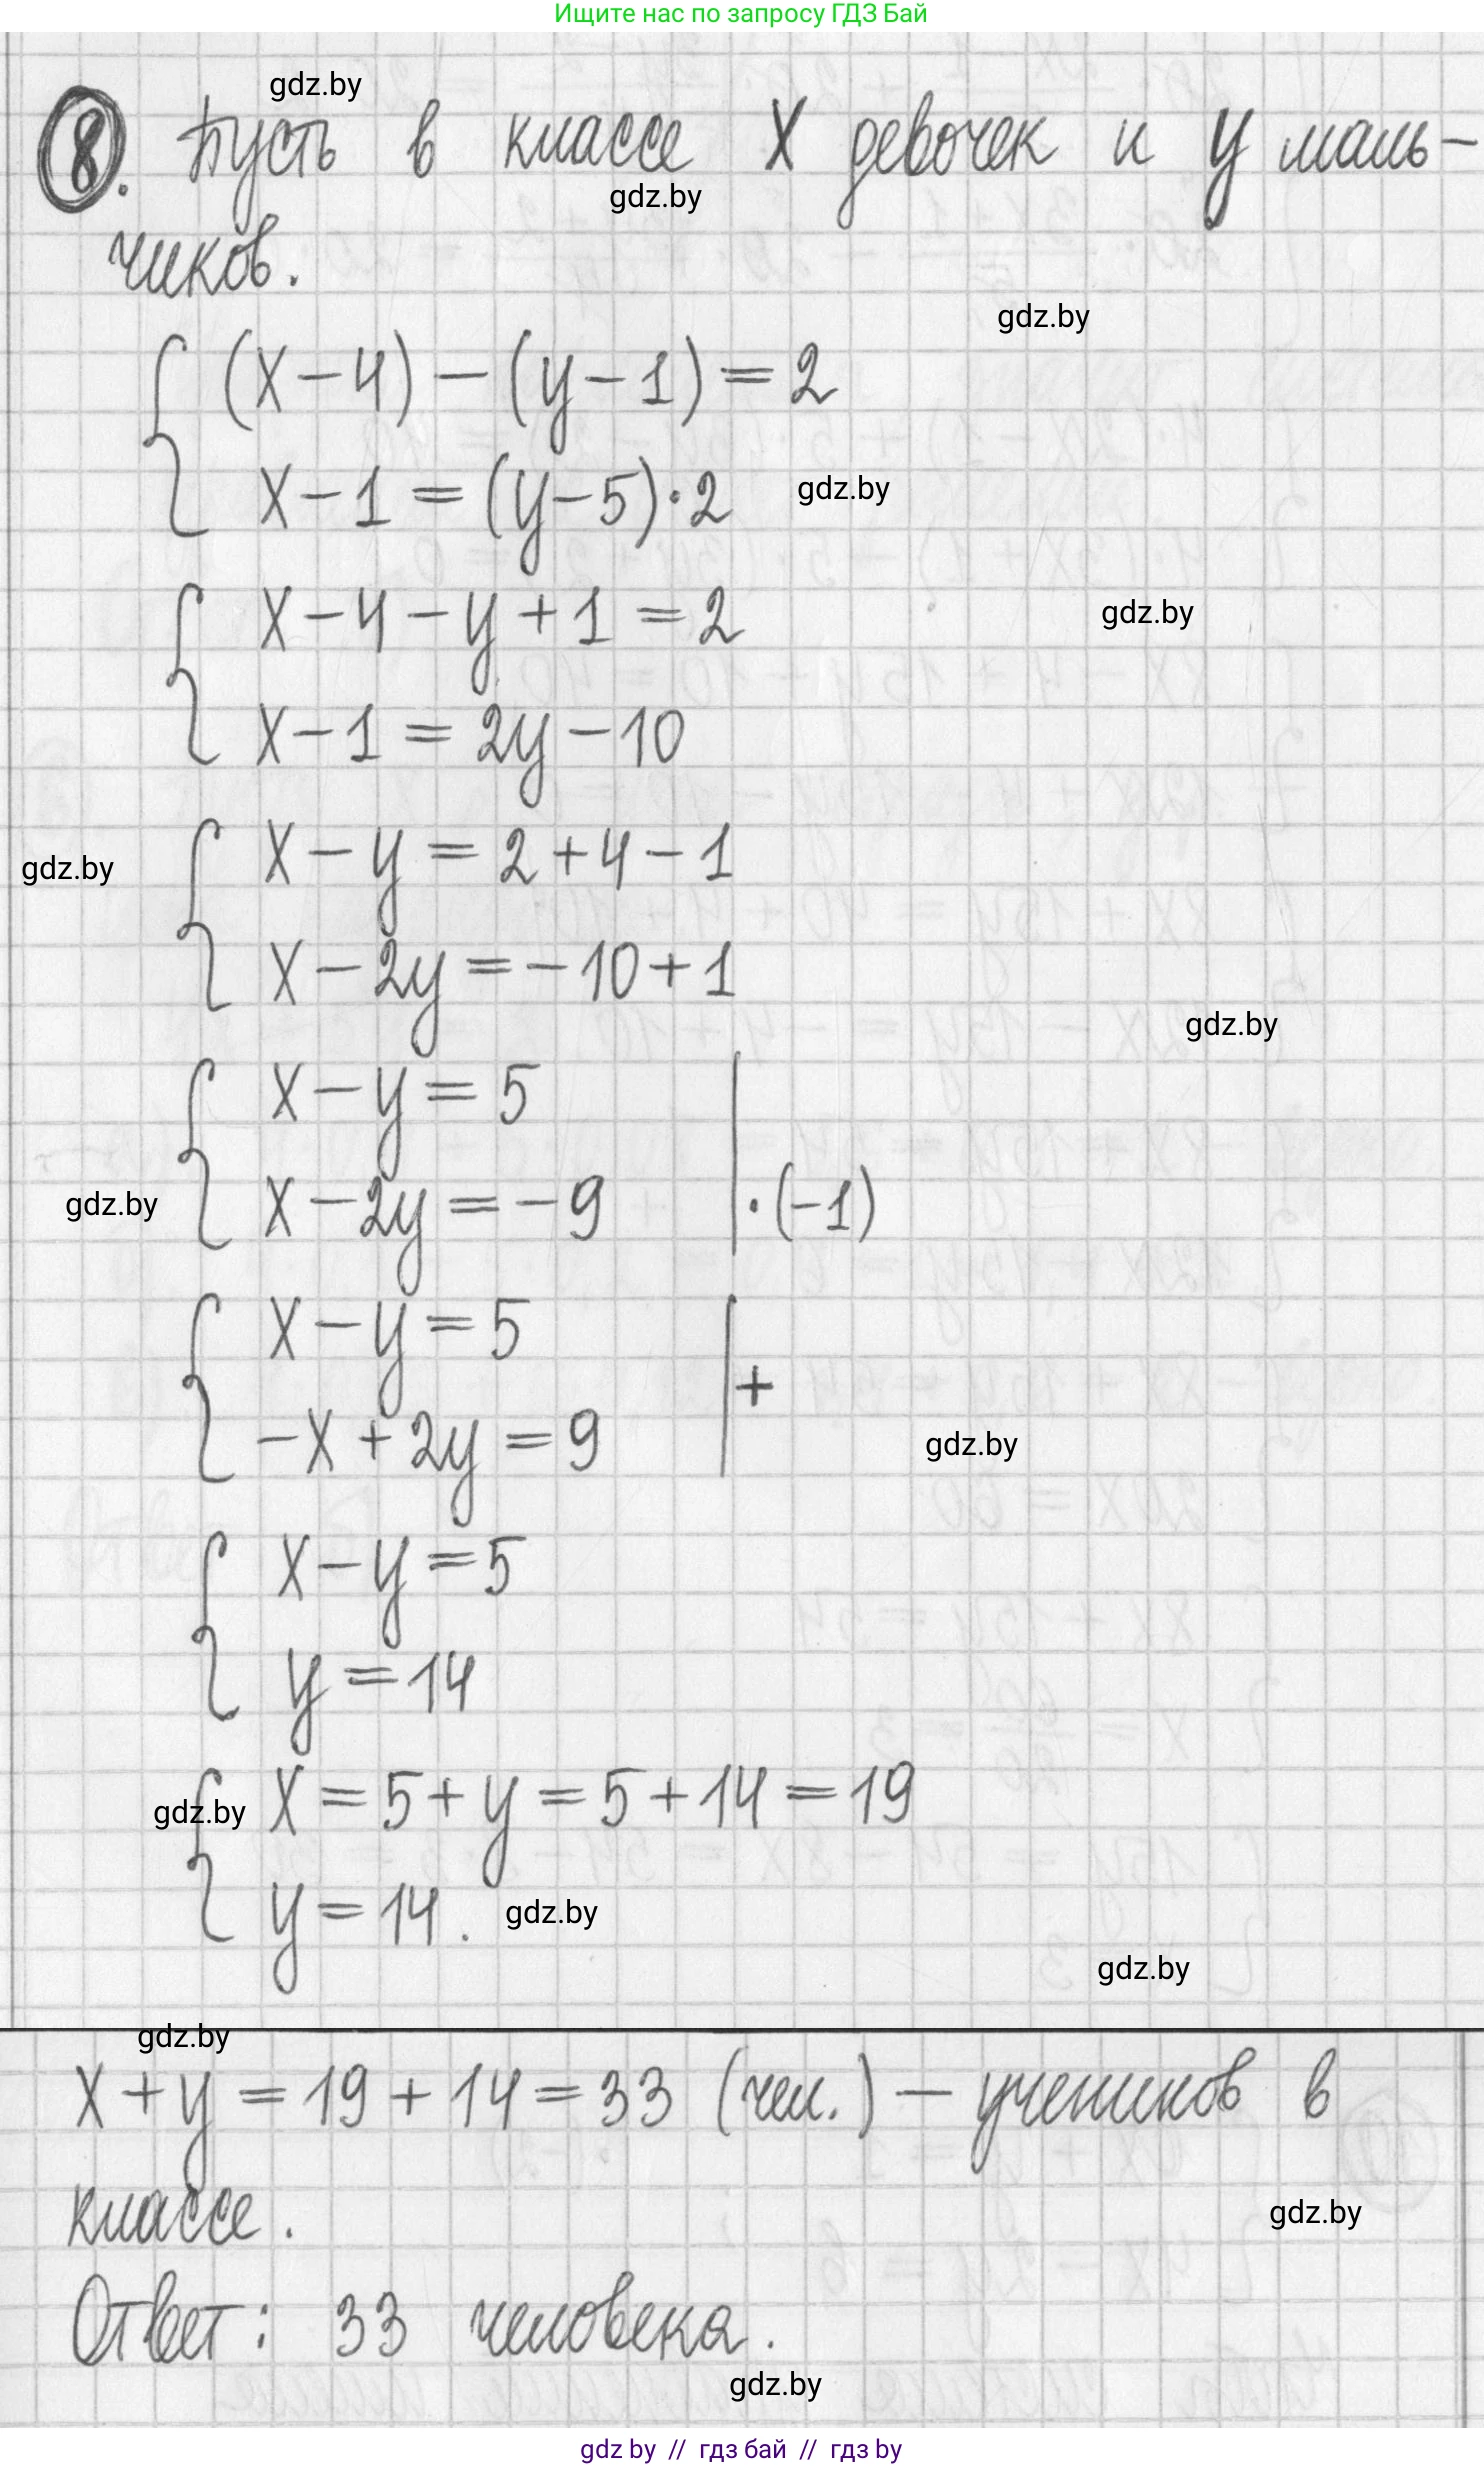 Ищите нас по запросу ГДЗ Бай
gdz.by
8. Пусть в классе x девочек и y маль-
gdz.by
чиков.
gdz.by
(x-4)-(y-1)=2
x-1=(y-5)·2
gdz.by
x-4-y+1=2
gdz.by
x-1=2y-10
x-y=2+4-1
gdz.by
x-2y=-10+1
gdz.by
x-y=5
x-2y=-9 | ·(-1)
gdz.by
x-y=5 | +
-x+2y=9
gdz.by
x-y=5
y=14
x=5+y=5+14=19
gdz.by
y=14.
gdz.by
gdz.by
gdz.by
x+y=19+14=33 (чел.) – учеников в
классе.
gdz.by
Ответ: 33 человека.
gdz.by
gdz by // гдз бай // гдз by